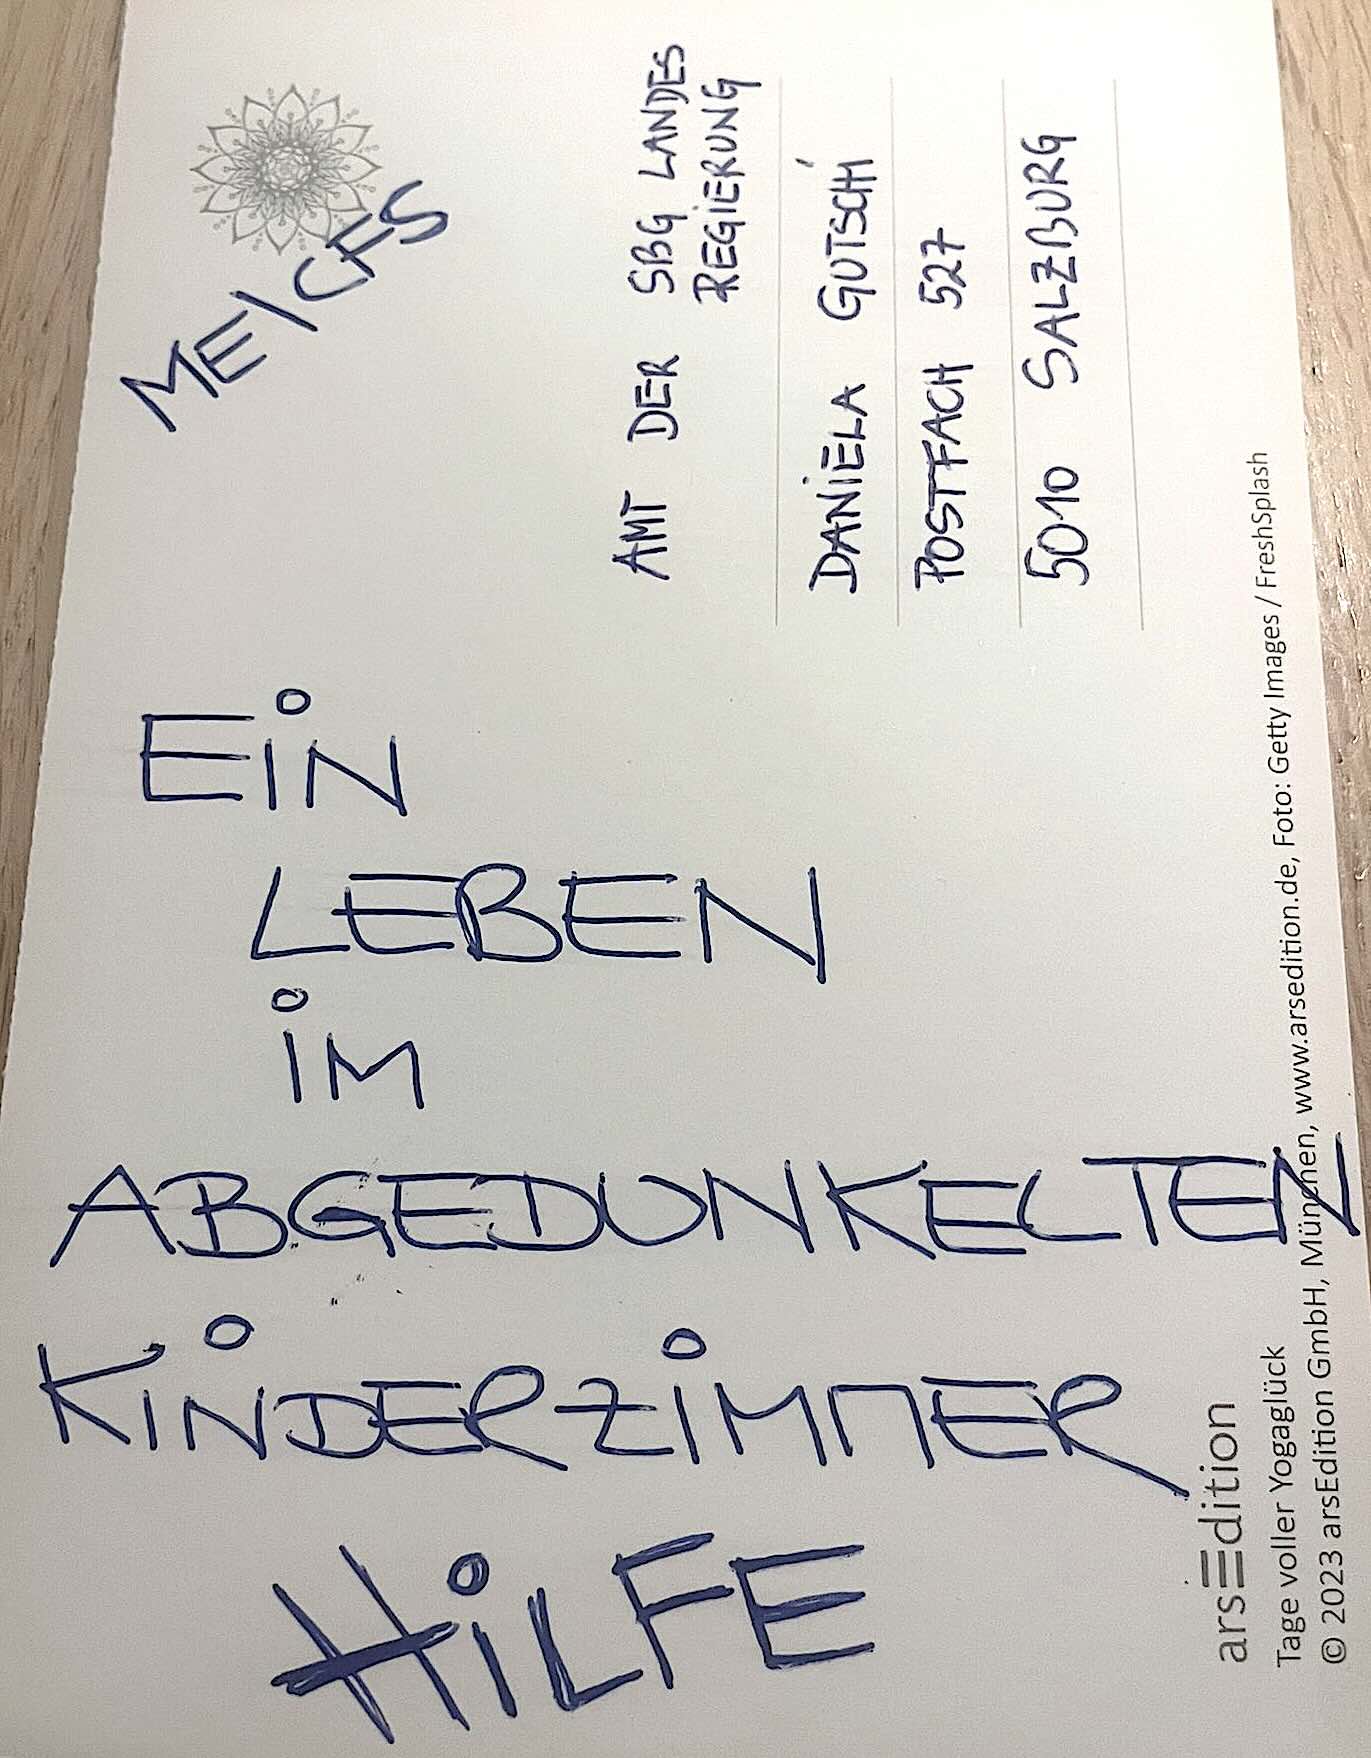 ME/CFS
AMT DER SBG LANDES
REGIERUNG
DANIELA GUTSCHI
POSTFACH 527
5010 SALZBURG
EIN
LEBEN
IM
ABGEDUNKELTEN
KINDERZIMMER
HILFE
arsEdition
Tage voller Yogaglück
© 2023 arsEdition GmbH, München, www.arsedition.de, Foto: Getty Images / FreshSplash